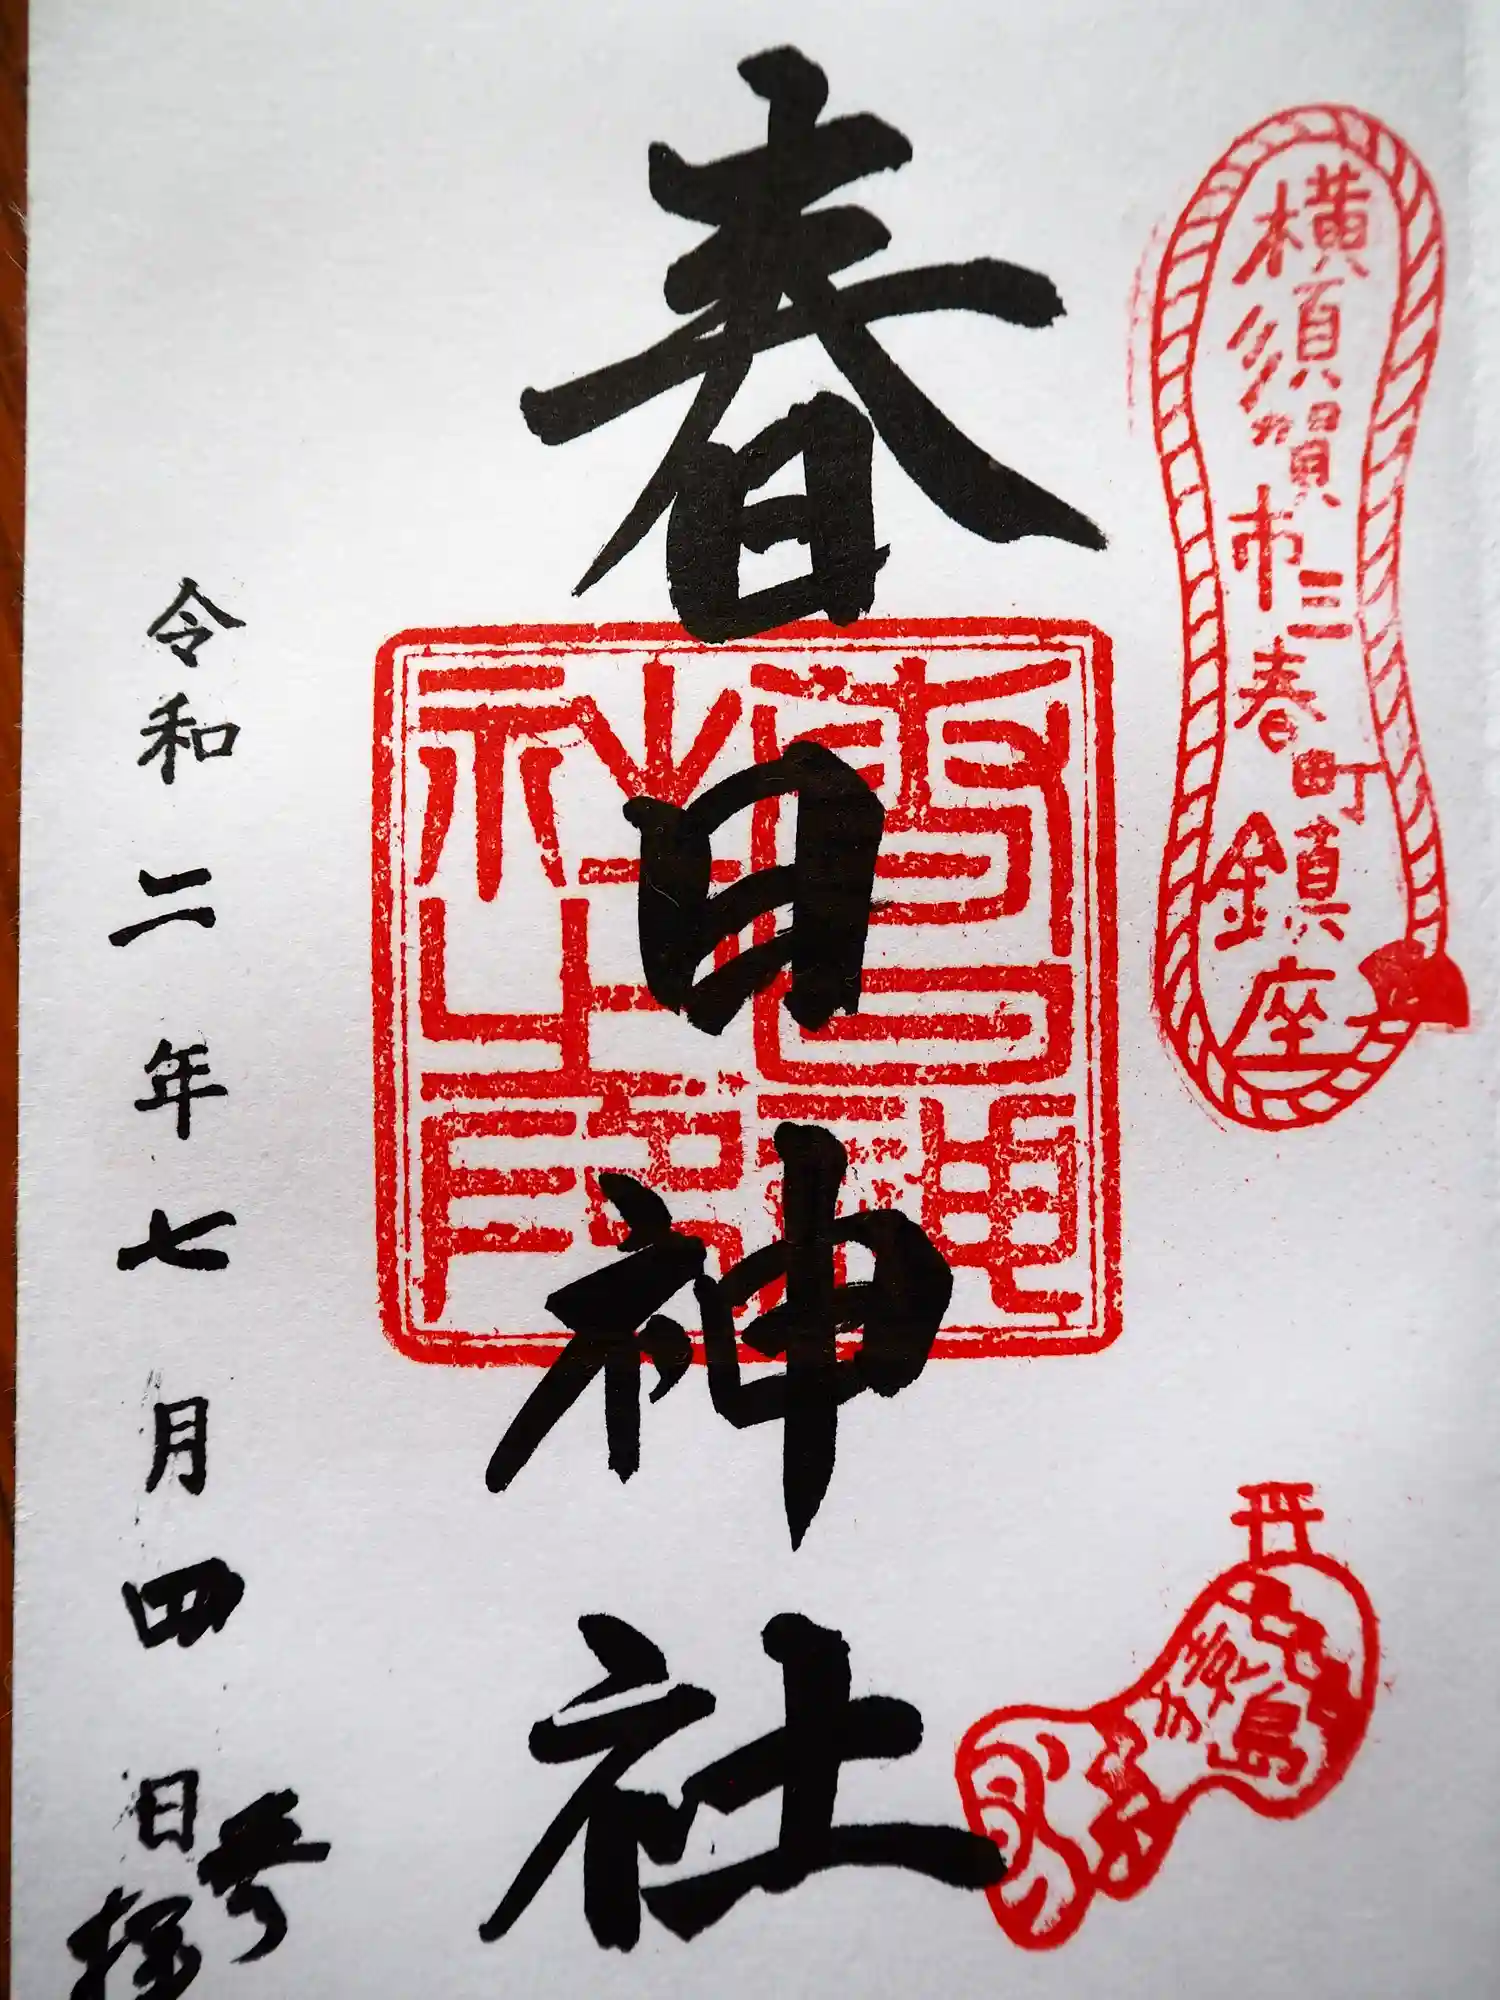 横須賀市三春町鎮座
猿島
春日神社
春日神社之印
令和二年七月四日